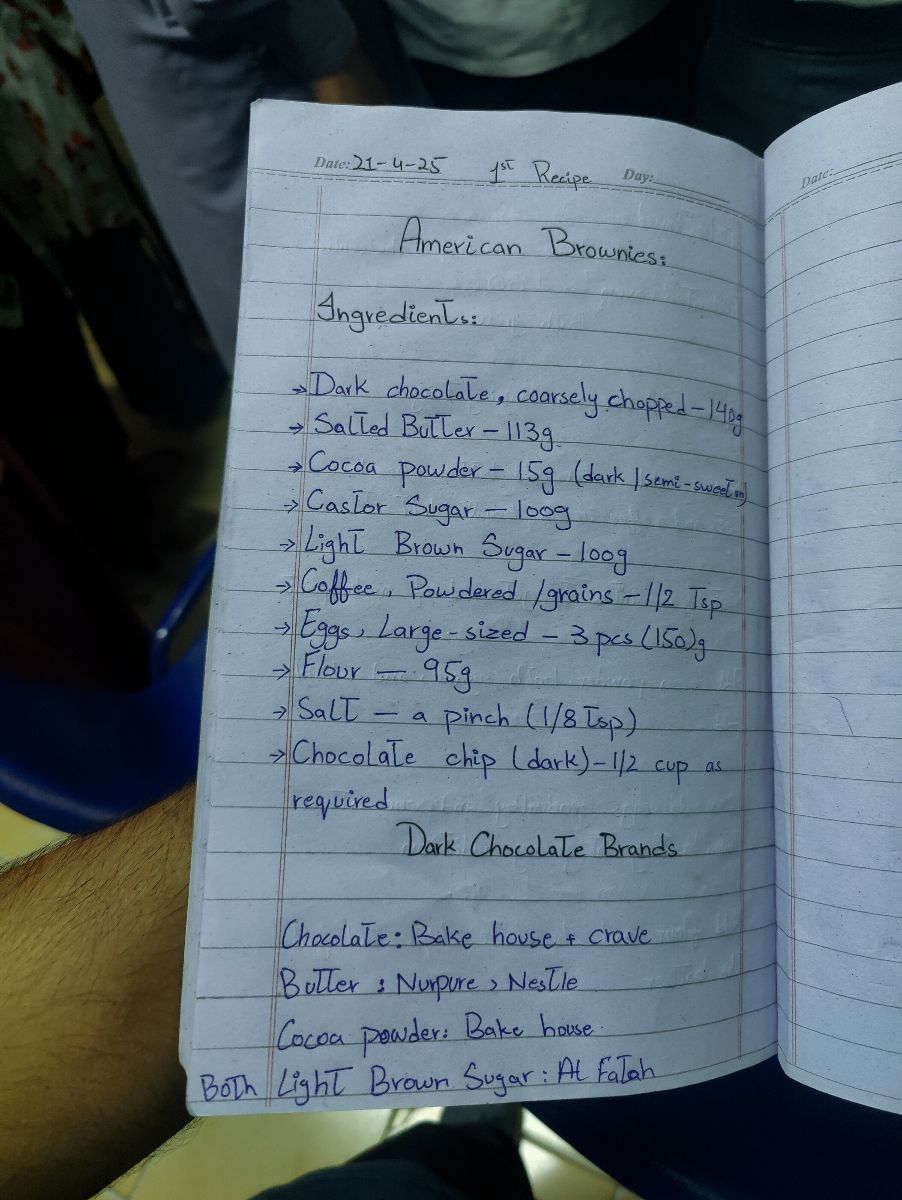 Date: 21-4-25 1st Recipe Day:
Date:
American Brownies:
Ingredients:
→ Dark chocolate, coarsely chopped - 140g
→ Salted Butter - 113g
→ Cocoa powder - 15g (dark / semi-sweet)
→ Castor Sugar - 100g
→ Light Brown Sugar - 100g
→ Coffee, Powdered /grains - 1/2 Tsp
→ Eggs, Large-sized - 3 pcs (150)g
→ Flour - 95g
→ Salt - a pinch (1/8 Tsp)
→ Chocolate chip (dark) - 1/2 cup as
required
Dark Chocolate Brands
Chocolate: Bake house + crave
Butter : Nurpure, Nestle
Cocoa powder: Bake house
Both Light Brown Sugar: Al Fatah